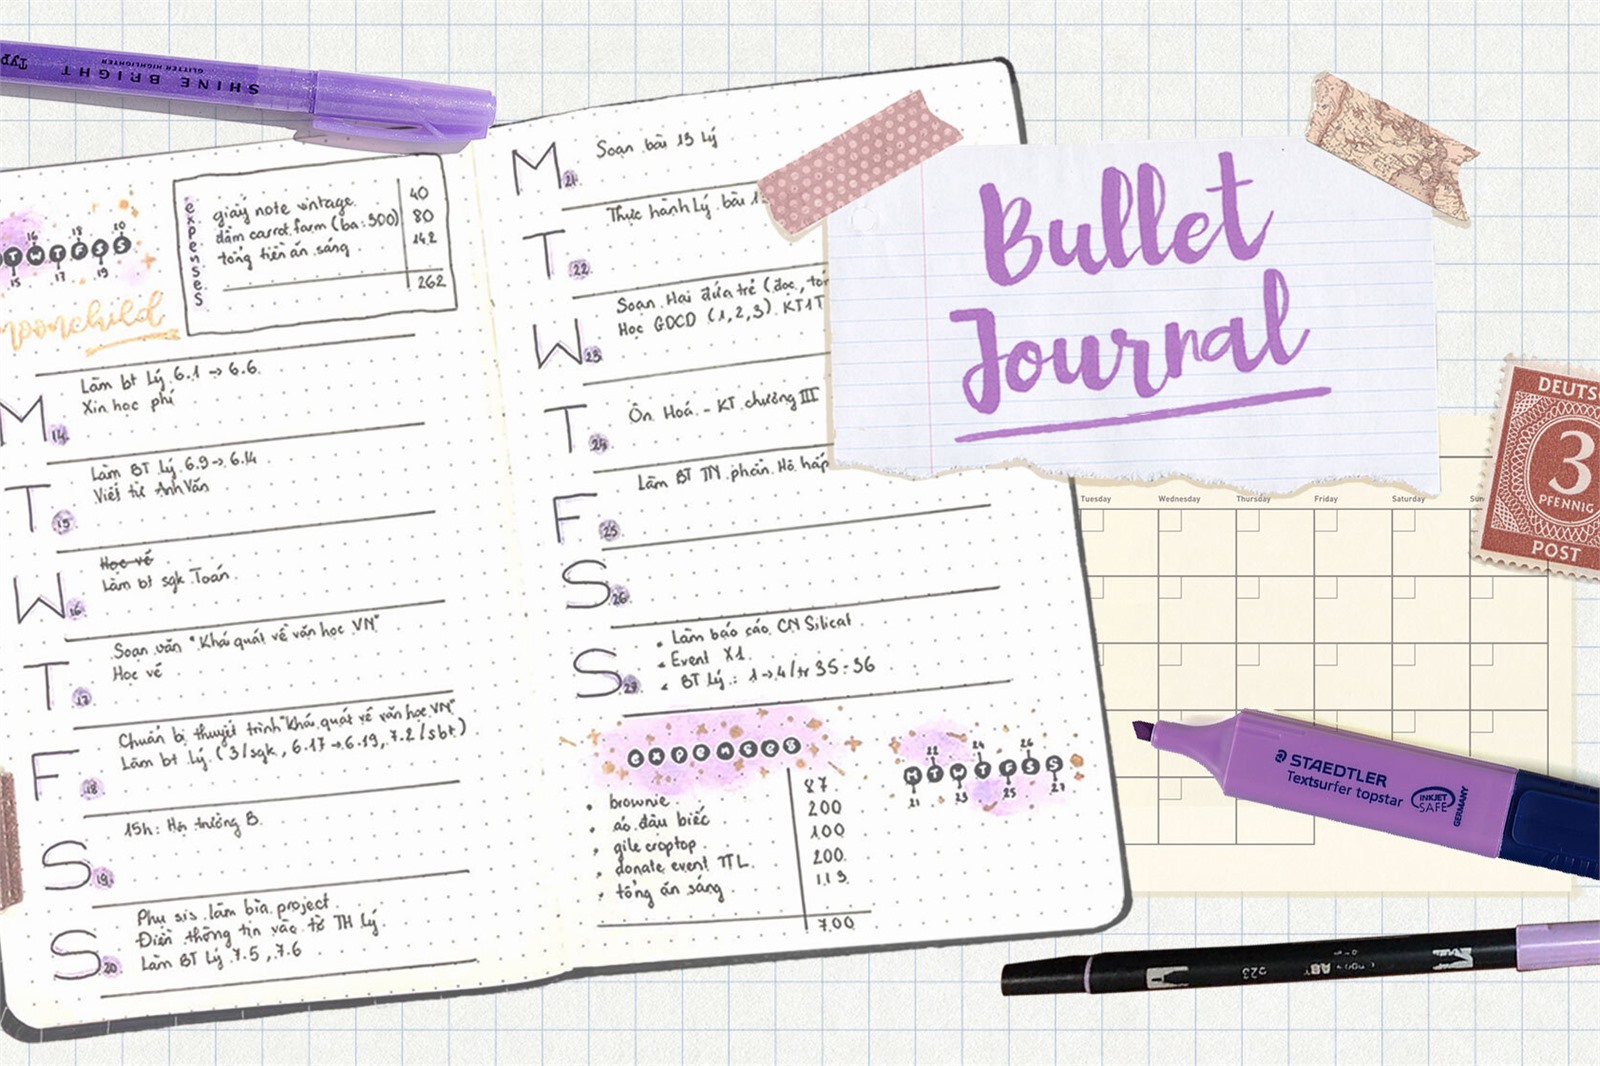 SHINE BRIGHT
GLITTER HIGHLIGHTER
Typ
16 18 10
T W T F S S
15 17 19
moonchild
expenses
giấy note vintage 40
dầm carrot farm (ba:300) 80
tổng tiền ăn sáng 142
262
M 14
Làm bt Lý 6.1 → 6.6.
Xin học phí
T 15
Làm BT Lý 6.9 → 6.14
Viết từ Anh Văn
W 16
Học vẽ
Làm bt sgk Toán
T 17
Soạn văn "Khái quát về văn học VN"
Học vẽ
F 18
Chuẩn bị thuyết trình "Khái quát về văn học VN"
Làm bt lý (3/sgk, 6.17 → 6.19, 7.2/sbt)
S 19
15h: Họp trường B.
S 20
Phụ sis làm bìa project
Điền thông tin vào tờ TH Lý
Làm BT Lý 7.5, 7.6
M 21
Soạn bài 13 Lý
T 22
Thực hành Lý bài
W 23
Soạn Hai đứa trẻ (đọc,
Học GDCD (1,2,3) KT1T
T 24
Ôn Hoá - KT chương III
F 25
Làm BT TN phần Hô hấp
S 26
S 27
• Làm báo cáo CN Silicat
• Event X1
• BT Lý: 1→4/tr 35-36
expenses
• brownie 87
• áo đậu biếc 200
• gile croptop 100
• donate event TTL 200
• tổng ăn sáng 113
700
22 24 26
M T W T F S S
21 23 25 27
Bullet
Journal
Tuesday Wednesday Thursday Friday Saturday Sun
DEUTS
3
PFENNIG
POST
STAEDTLER
Textsurfer topstar
INKJET
SAFE
GERMANY
623
ABT